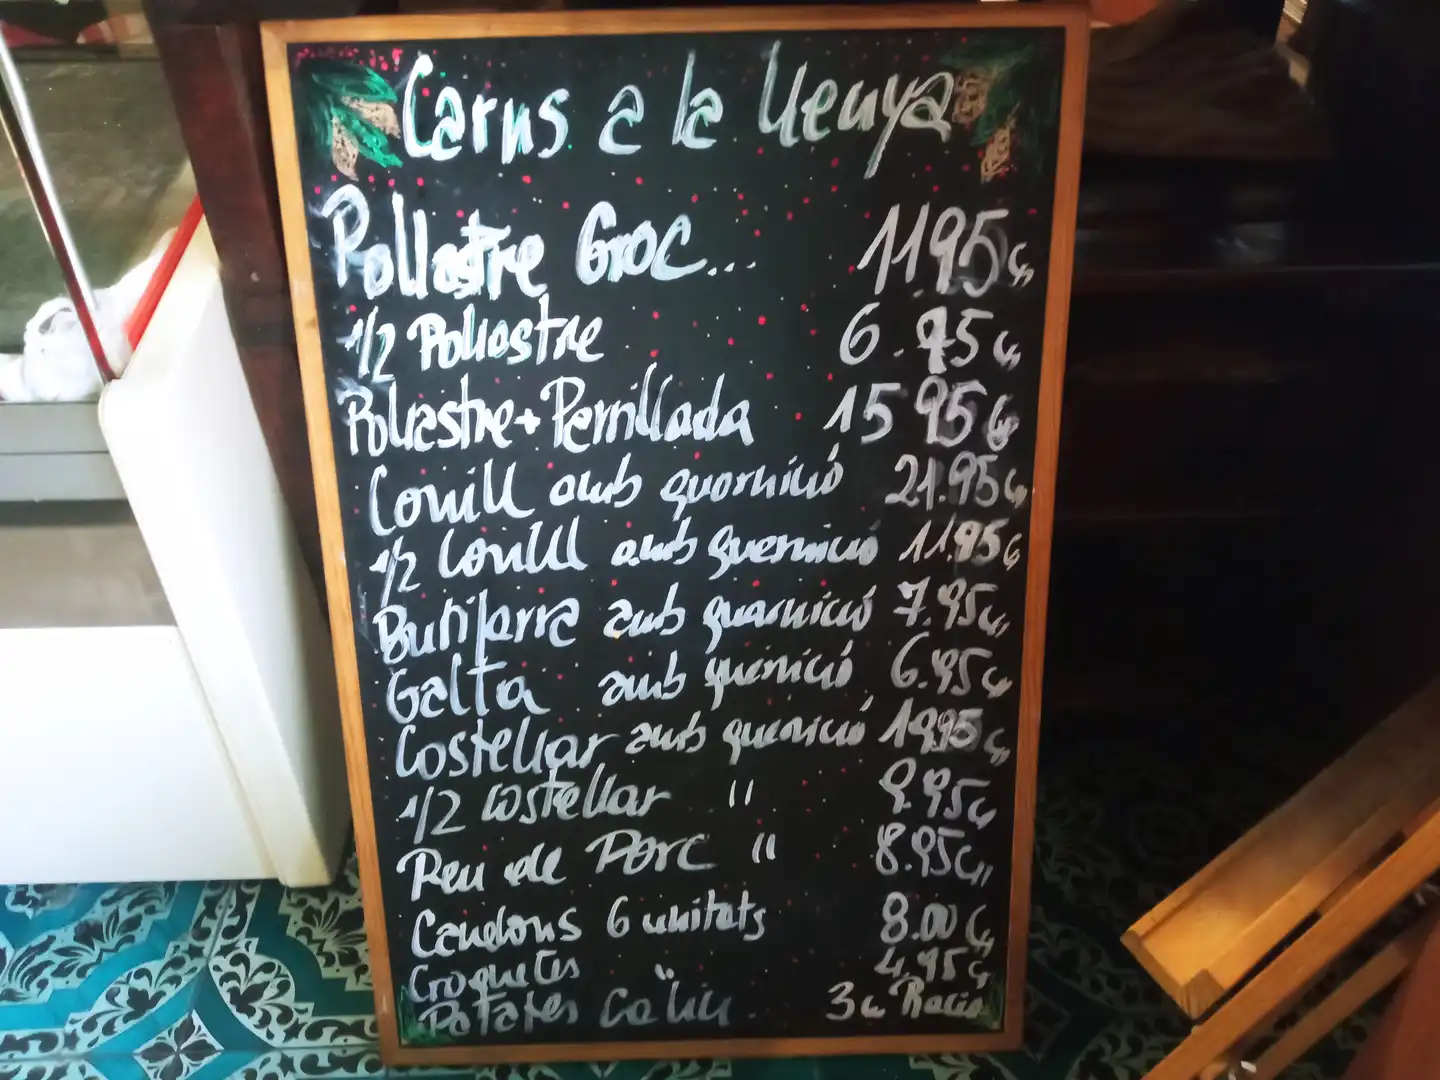 Carns a la llenya
Pollastre Groc... 11.95€
1/2 Pollastre 6.95€
Pollastre + Parrillada 15.95€
Conill amb guarnició 21.95€
1/2 Conill amb guarnició 11.95€
Butifarra amb guarnició 7.95€
Galta amb guarnició 6.95€
Costellar amb guarnició 19.95€
1/2 Costellar " 9.95€
Peu de Porc " 8.95€
Canelons 6 unitats 8.00€
Croquetes " 4,95€
Patates Caliu 3€ Ració